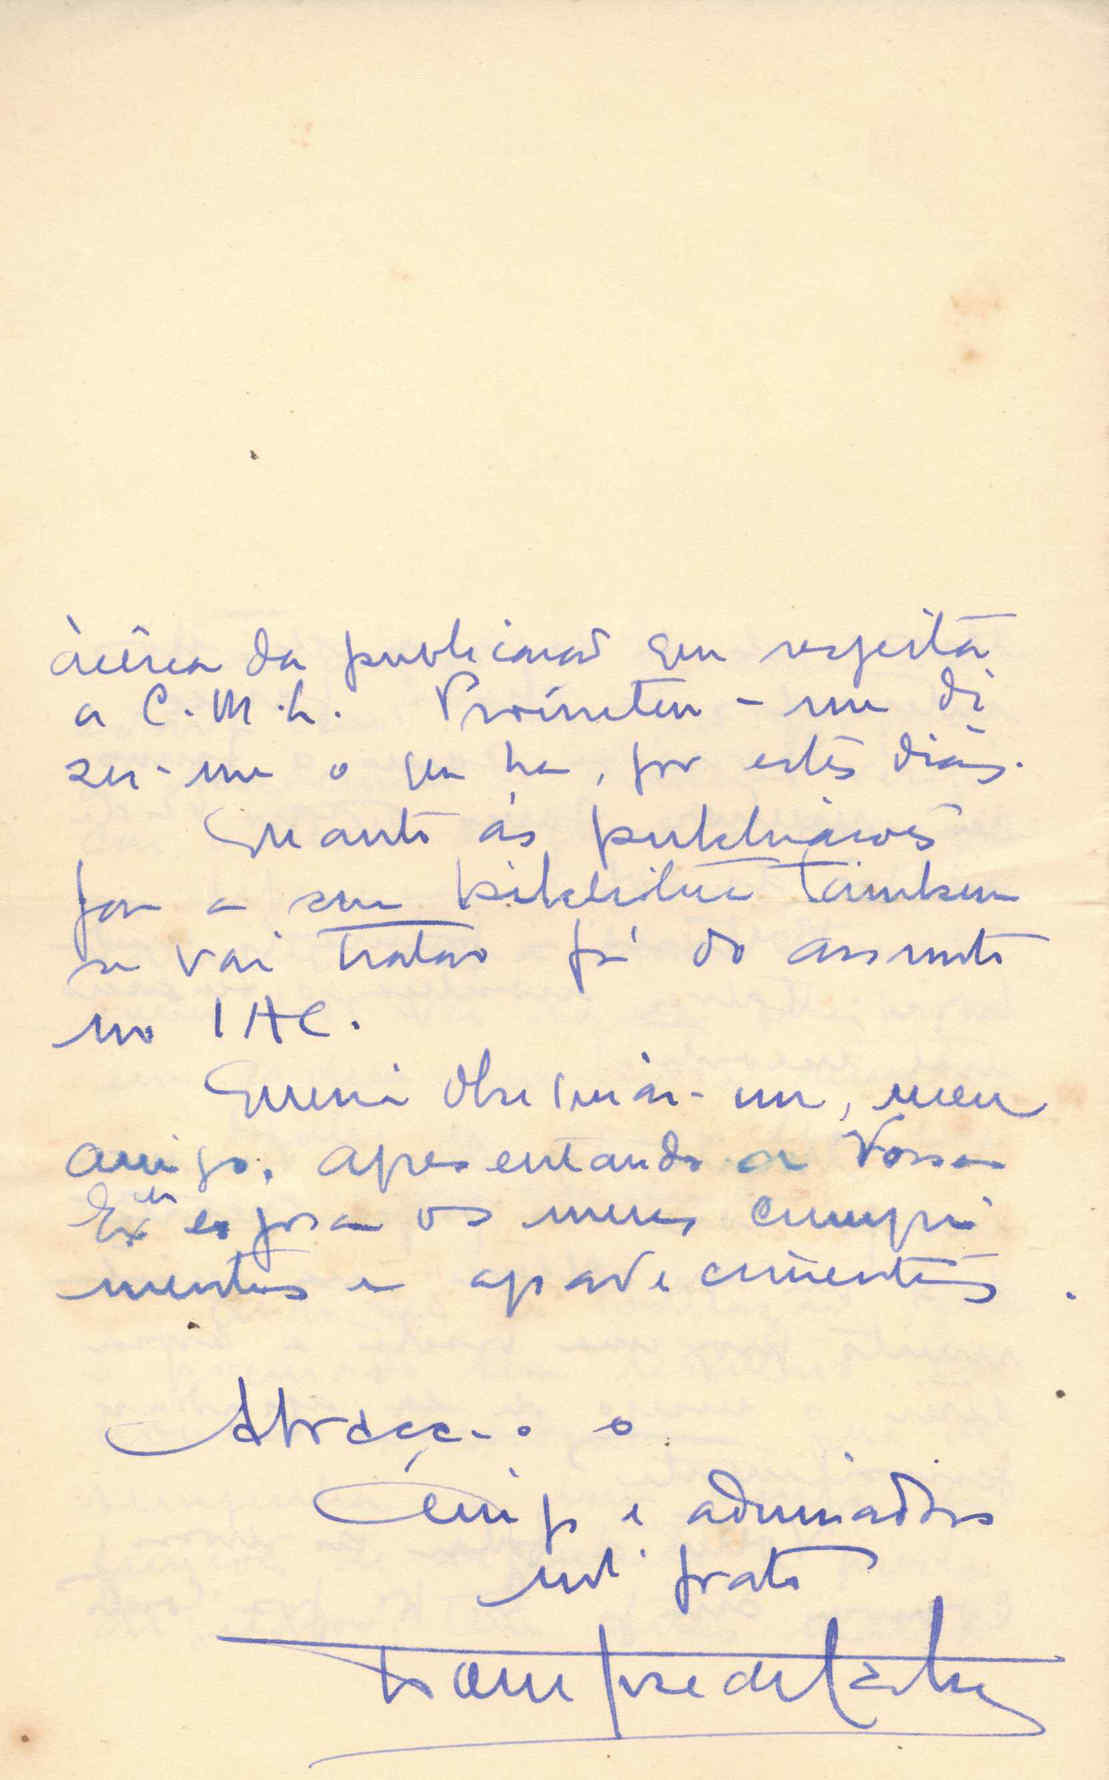 àcêrca da publicação que respeita
a C.M.L. Prometeu-me di
zer-me o que ha, por estes dias.
Quanto às publicações
para a sua bibliotéca tambem
se vai tratar já do assunto
no IAC.
Queira obsequiar-me, meu
amigo, apresentando a Vossa
Exma esposa os meus cumpri
mentos e agradecimentos.
Abraça-o o
Amigo e admirador
mtº grato